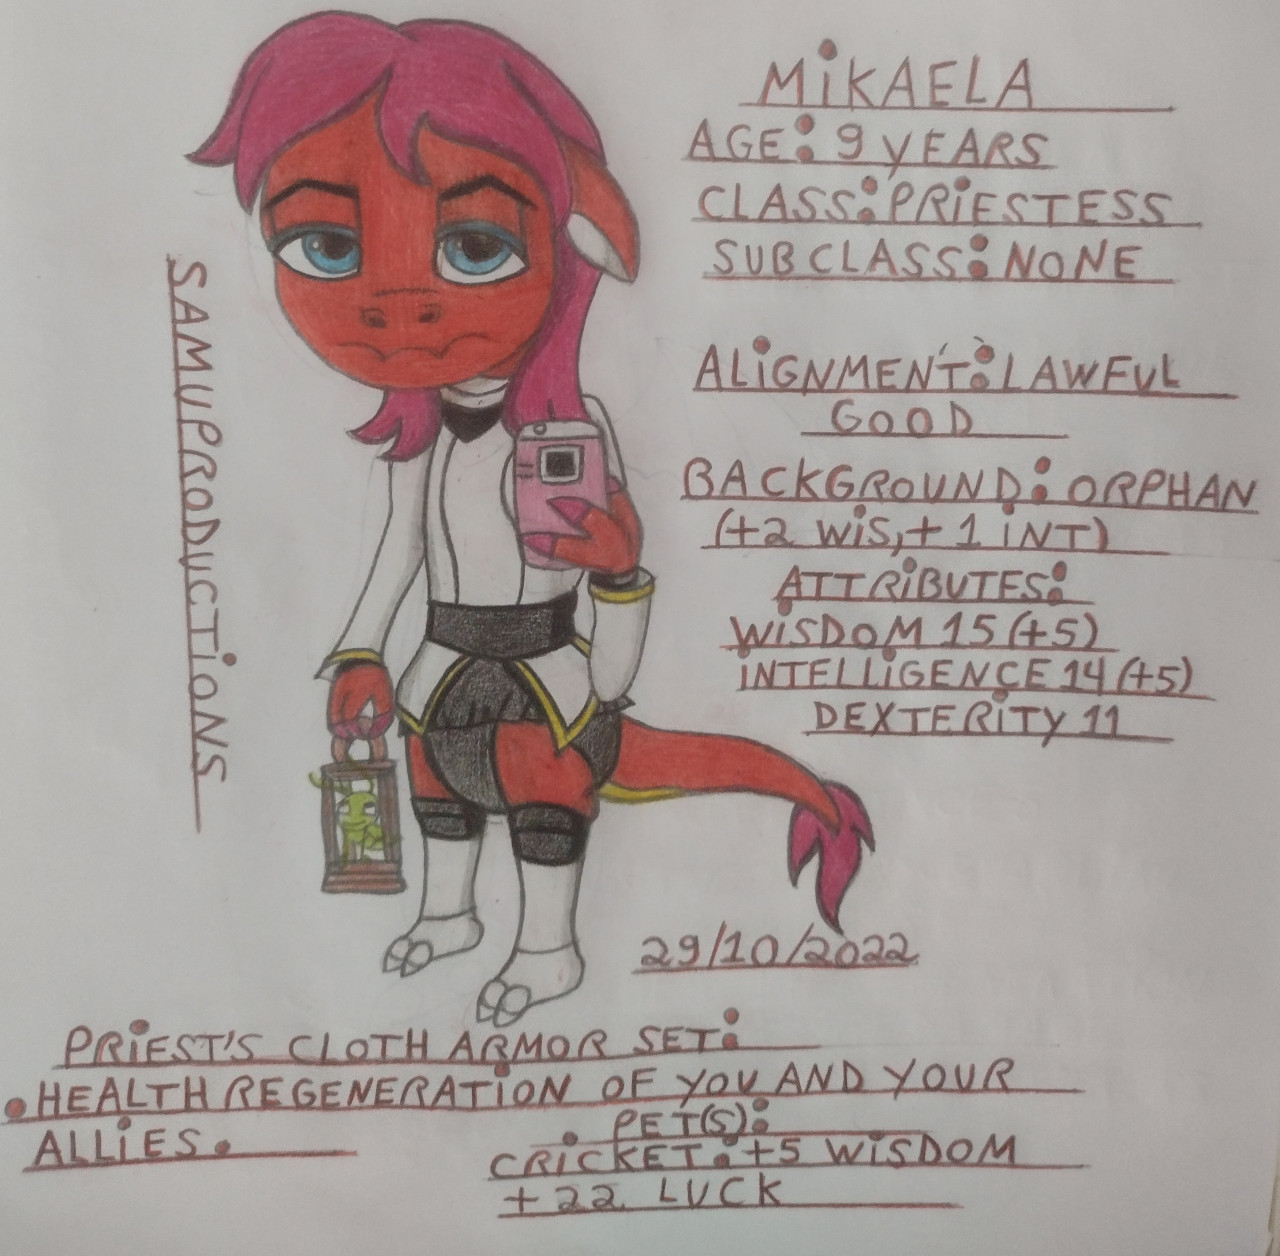 MiKAELA
AGE: 9 YEARS
CLASS: PRiESTESS
SUBCLASS: NONE
ALiGNMENT: LAWFUL
GOOD
BACKGROUND: ORPHAN
(+2 WiS, + 1 iNT)
ATTRiBUTES:
WiSDOM 15 (+5)
iNTELLiGENCE 14 (+5)
DEXTERiTY 11
SAMUPRODUCTiONS
29/10/2022
PRiEST'S CLOTH ARMOR SET:
• HEALTH REGENERATiON OF YOU AND YOUR
ALLiES.
PET(S):
CRiCKET: +5 WiSDOM
+22 LUCK